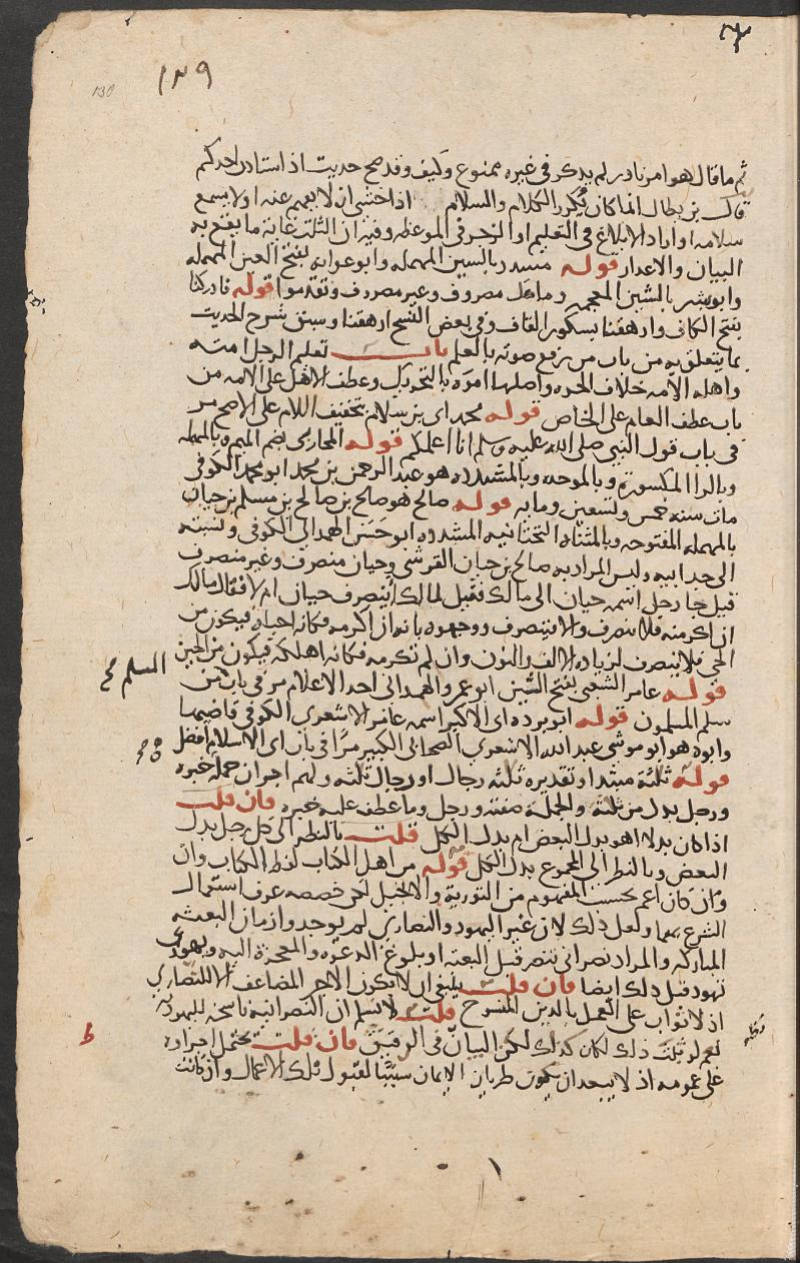 ١٣٩
130
ثم ما قال هو امر نادر لم يذكر في غيره ممنوع وكيف وقد صح حديث اذا استاذن احدكم
قال بن بطال انما كان يكرر الكلام والسلام اذا خشي ان لا يفهم عنه او لا يسمع
سلامه او اراد الابلاغ في التعليم او الزجر في الموعظه وفيه ان الثلث غاية ما يقع به
البيان والاعذار قوله مسدد بالسين المهمله وابو عوانه بفتح العين المهمله
وابو بشر بالشين المعجمه وماهك مصروف وغير مصروف وتقدموا قوله فادركنا
بفتح الكاف وارهقنا بسكون القاف وفي بعض النسخ ارهقتنا وسبق شرح الحديث
بما يتعلق به من باب من رفع صوته بالعلم باب تعليم الرجل امته
واهله الامه خلاف الحره واصلها امَوَه بالتحريك وعطف الاهل على الامه من
باب عطف العام على الخاص قوله محمد اي بن سلام بتخفيف اللام على الاصح مر
في باب قول النبي صلى الله عليه وسلم انا اعلمكم قوله المحاربي بضم الميم وبالمهمله
وبالراء المكسورة وبالموحده وبالمشدده هو عبد الرحمن بن محمد ابو محمد الكوفي
مات سنه خمس وتسعين ومايه قوله صالح هو صالح بن صالح بن مسلم بن حيان
بالمهمله المفتوحه وبالمثناه التحتانيه المشدده ابو حسن الهمداني الكوفي ونسبته
الى جد ابيه وليس المراد به صالح بن حيان القرشي وحيان منصرف وغير منصرف
قيل جا رجل اسمه حيان الى مالك فقيل لمالك اينصرف حيان ام لا فقال مالك
ان اكرمته فلا ينصرف والا ينصرف ووجهوه بانه ان اكرمه فكانه احياه فيكون من
الحي فلا ينصرف لزياده الالف والنون وان لم نكرمه فكانه اهلكه فيكون من الحين
المسلم صح
قوله عامر الشعبي بفتح الشين ابو عمرو الهمداني احد الاعلام مر في باب من
سلم المسلمون قوله ابو برده اي الاكبر اسمه عامر الاشعري الكوفي قاضيها
وابوه هو ابو موسى عبد الله الاشعري الصحابي الكبير مرا في باب اي الاسلام افضل
قوله ثلثة مبتدا وتقديره ثلثه رجال او رجال ثلثه ولهم اجران جملة خبره
ورجل بدل من ثلثة والجملة صفته ورجل وما عطف عليه خبره فان قلت
اذا كان بدلا اهو بدل البعض ام بدل الكل قلت بالنظر الى كل رجل بدل
البعض وبالنظر الى المجموع بدل الكل قوله من اهل الكتاب لفظ الكتاب وان
وان كان اعم بحسب المفهوم من التورية والانجيل لكن خصصه عرف استعمال
الشرع بهما ولعل ذلك لان غير اليهود والنصارى لم يوجد وا زمان البعثه
المباركه والمراد نصراني تنصر قبل البعثه او بلوغ الدعوه والمعجزة اليه ويهودي
تهود قبل ذلك ايضا فان قلت ينبغي ان لا يكون الاجر المضاعف الا للنصارى
اذ لا ثواب على العمل بالدين المنسوخ قلت لا نسلم ان النصرانية ناسخه لليهوديه
نعم لو ثبت ذلك لكان كذلك لكن البيان في الرقيق فان قلت يحتمل اجراوه
على عمومه اذ لا يبعد ان يكون طريان الايمان سببا لقبول تلك الاعمال وان كانت